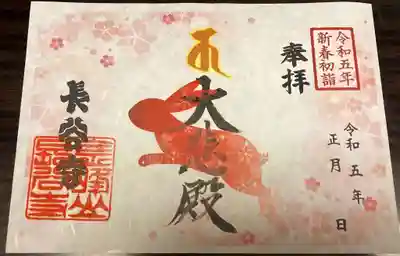 令和五年
新春初詣
奉拝
令和五年
正月 日
大悲殿
長谷寺